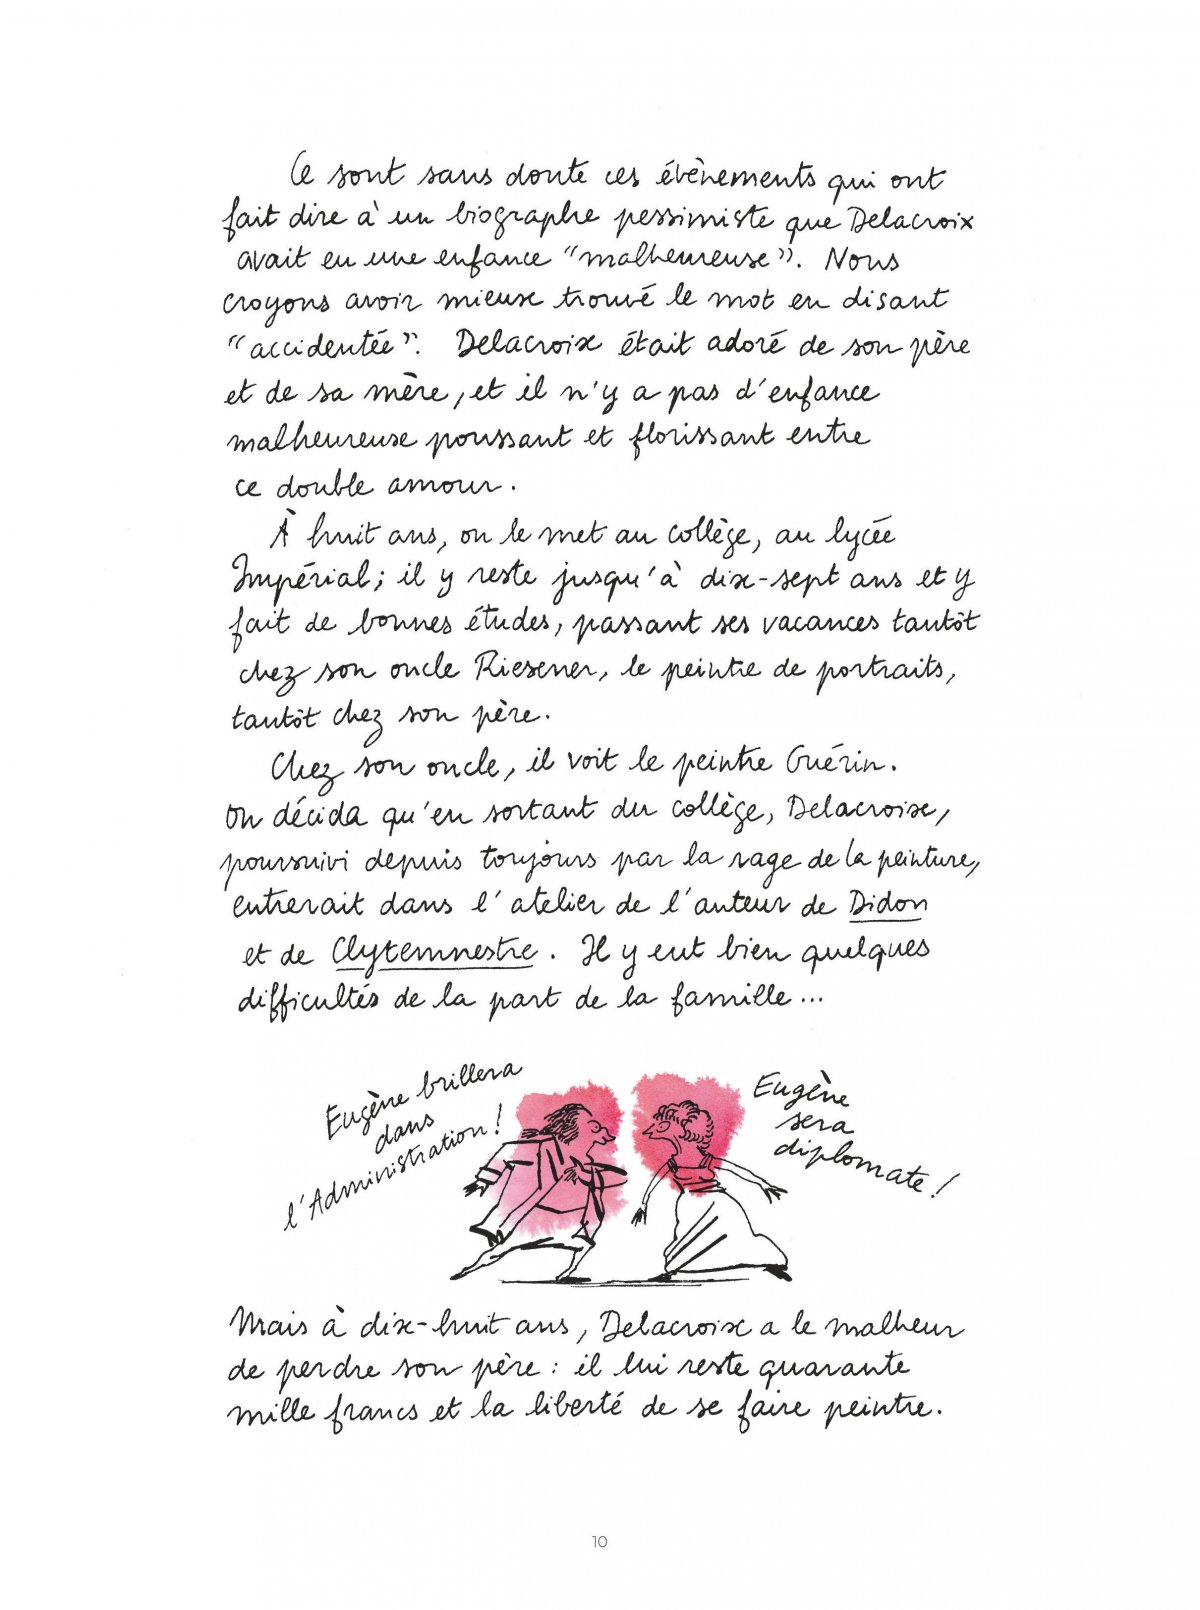 Ce sont sans doute ces évènements qui ont
fait dire à un biographe pessimiste que Delacroix
avait eu une enfance "malheureuse". Nous
croyons avoir mieux trouvé le mot en disant
"accidentée". Delacroix était adoré de son père
et de sa mère, et il n'y a pas d'enfance
malheureuse poussant et florissant entre
ce double amour.
À huit ans, on le met au collège, au lycée
Impérial; il y reste jusqu'à dix-sept ans et y
fait de bonnes études, passant ses vacances tantôt
chez son oncle Riesener, le peintre de portraits,
tantôt chez son père.
Chez son oncle, il voit le peintre Guérin.
On décida qu'en sortant du collège, Delacroix,
poursuivi depuis toujours par la rage de la peinture,
entrerait dans l'atelier de l'auteur de Didon
et de Clytemnestre. Il y eut bien quelques
difficultés de la part de la famille...
Eugène brillera
dans
l'Administration!
Eugène
sera
diplomate!
Mais à dix-huit ans, Delacroix a le malheur
de perdre son père : il lui reste quarante
mille francs et la liberté de se faire peintre.
10